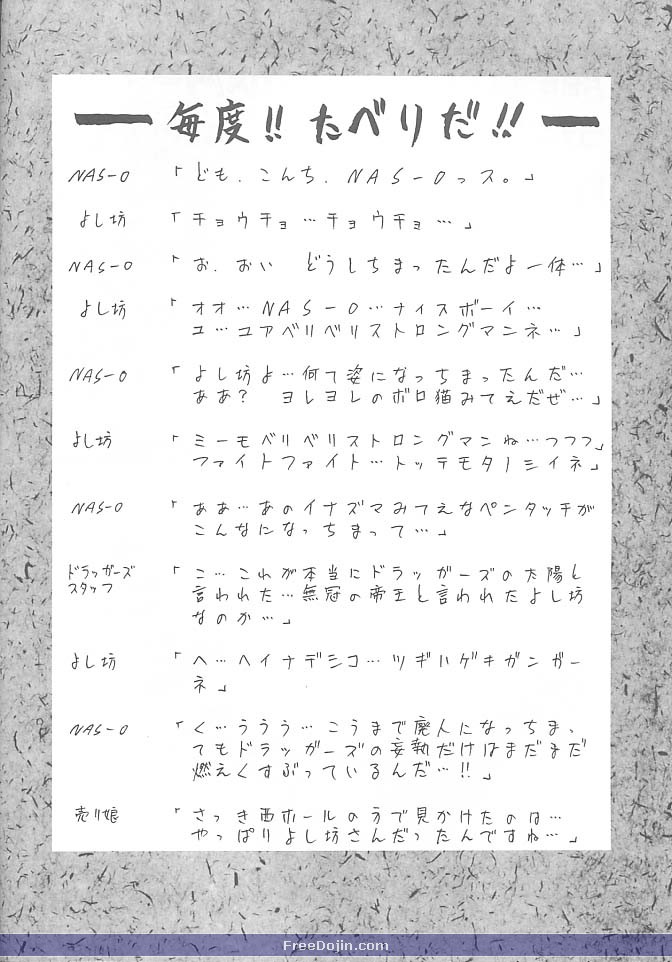 毎度!! たべりだ!!
NAS-O 「ども、こんち、NAS-Oっス。」
よし坊 「チョウチョ…チョウチョ…」
NAS-O 「お、おい どうしちまったんだよ一体…」
よし坊 「オオ…NAS-O…ナイスボーイ…
ユ…ユアベリベリストロングマンネ…」
NAS-O 「よし坊よ…何て姿になっちまったんだ…
ああ? ヨレヨレのボロ猫みてえだぜ…」
よし坊 「ミーモベリベリストロングマンね…フフフ」
ファイトファイト…トッテモタノシイネ」
NAS-O 「ああ…あのイナズマみてえなペンタッチが
こんなになっちまって…」
ドラッガーズ
スタッフ 「こ…これが本当にドラッガーズの太陽と
言われた…無冠の帝王と言われたよし坊
なのか…」
よし坊 「ヘ…ヘイナデシコ…ツギハゲキガンガー
ネ」
NAS-O 「く…ううう…こうまで廃人になっちまっ
てもドラッガーズの妄執だけはまだまだ
燃えくすぶっているんだ…!!」
売り娘 「さっき西ホールの方で見かけたのは…
やっぱりよし坊さんだったんですね…」
FreeDojin.com